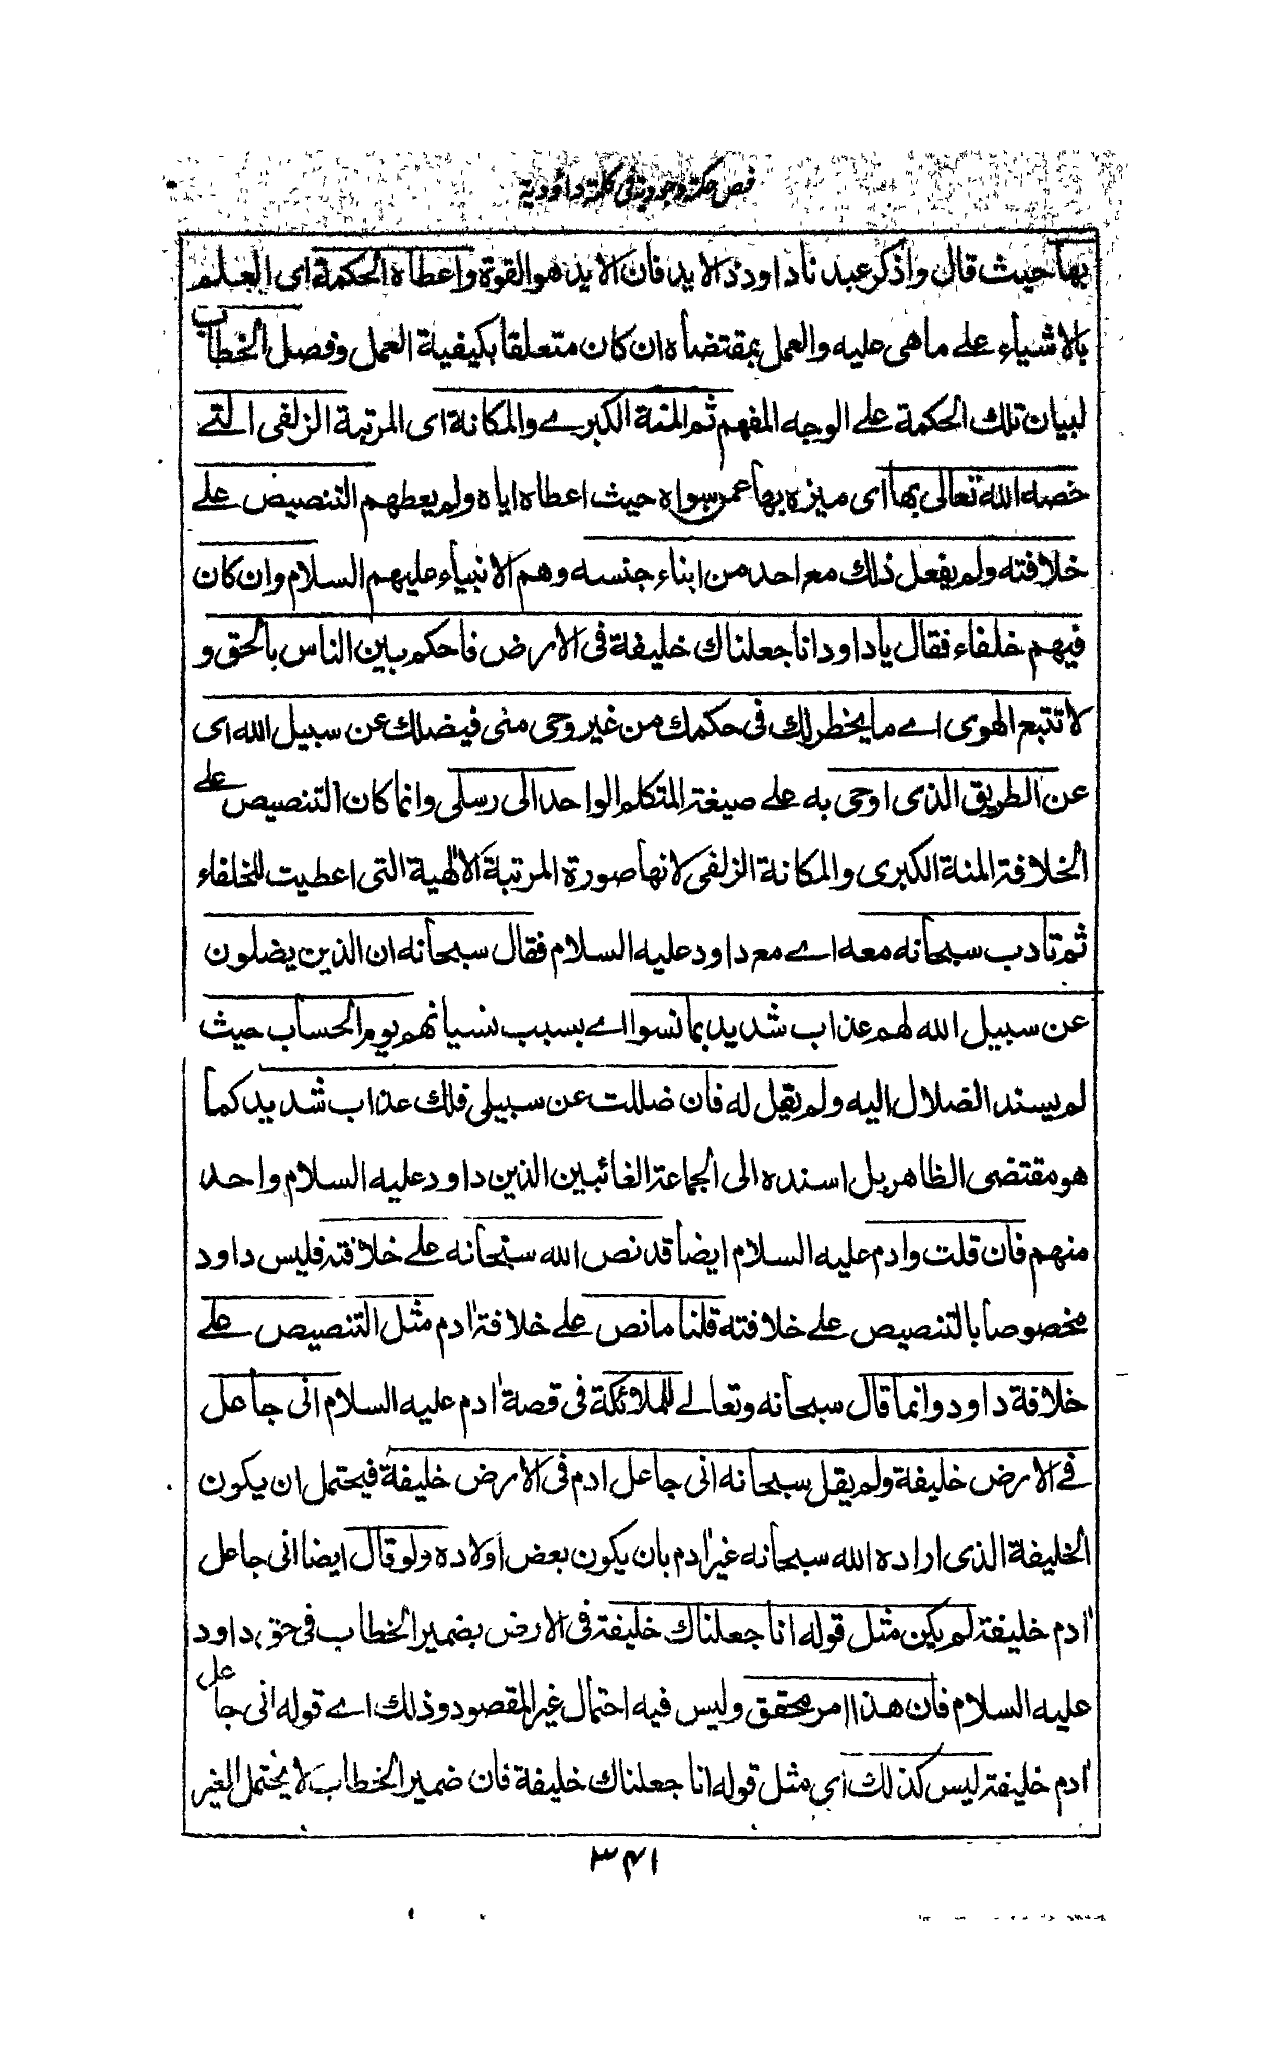 فص حكمة وجودية فى كلمة داؤدية
بها حيث قال واذكر عبدنا داود ذا الايد فان الايد هو القوة واعطاه الحكمة اى العلم
بالاشياء علے ما هى عليه والعمل بمقتضاه ان كان متعلقا بكيفية العمل وفصل الخطاب
لبيان تلك الحكمة علے الوجه المفهم ثم المنة الكبرے والمكانة اى المرتبة الزلفى التے
خصه الله تعالى بها اى ميزه بها عمن سواه حيث اعطاه اياه ولم يعطهم التنصيص علے
خلافته ولم يفعل ذلك مع احد من ابناء جنسه وهم الانبياء عليهم السلام وان كان
فيهم خلفاء فقال يا داود انا جعلناك خليفة فى الارض فاحكم بين الناس بالحق و
لا تتبع الهوى اے ما يخطر لك فى حكمك من غير وحى منى فيضلك عن سبيل الله اى
عن الطريق الذى اوحى به علے صيغة المتكلم الواحد الى رسلى وانما كان التنصيص علے
الخلافة المنة الكبرى والمكانة الزلفى لانها صورة المرتبة الالٰهية التى اعطيت للخلفاء
ثم تادب سبحانه معه اے مع داود عليه السلام فقال سبحانه ان الذين يضلون
عن سبيل الله لهم عذاب شديد بما نسوا اے بسبب نسيانهم يوم الحساب حيث
لم يسند الضلال اليه ولم يقل له فان ضللت عن سبيلى فلك عذاب شديد كما
هو مقتضى الظاهر بل اسنده الى الجماعة الغائبين الذين داود عليه السلام واحد
منهم فان قلت وادم عليه السلام ايضا قد نص الله سبحانه علے خلافته فليس داود
مخصوصا بالتنصيص علے خلافته قلنا ما نص علے خلافة اٰدم مثل التنصيص علے
خلافة داود وانما قال سبحانه وتعالے للملائكة فى قصة اٰدم عليه السلام انى جاعل
فے الارض خليفة ولم يقل سبحانه انى جاعل ادم فى الارض خليفة فيحتمل ان يكون
الخليفة الذى اراده الله سبحانه غير اٰدم بان يكون بعض اولاده ولو قال ايضا انى جاعل
اٰدم خليفة لم يكن مثل قوله انا جعلناك خليفة فى الارض بضمير الخطاب فى حق داود
عليه السلام فان هذا امر محقق وليس فيه احتمال غير المقصود وذلك اے قوله انى جاعل
اٰدم خليفة ليس كذلك اى مثل قوله انا جعلناك خليفة فان ضمير الخطاب لا يحتمل الغير
٣٤١